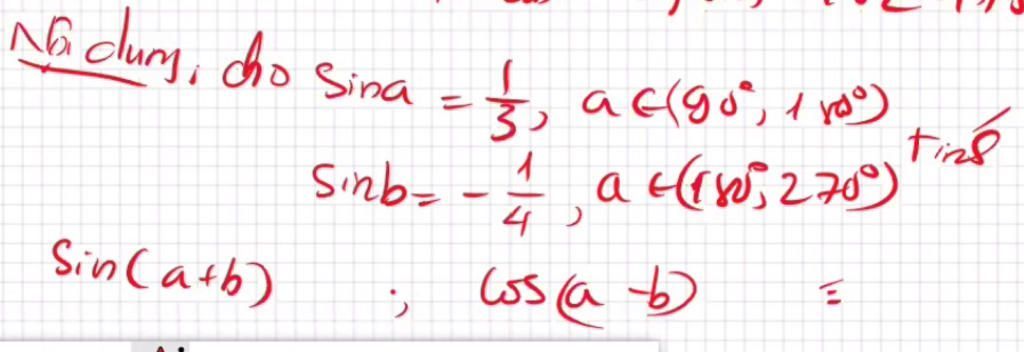 Nội dung, cho sina = 1/3, a ∈ (90°, 180°)
sinb = - 1/4, a ∈ (180°, 270°) tính
sin(a+b) ; cos(a-b) =